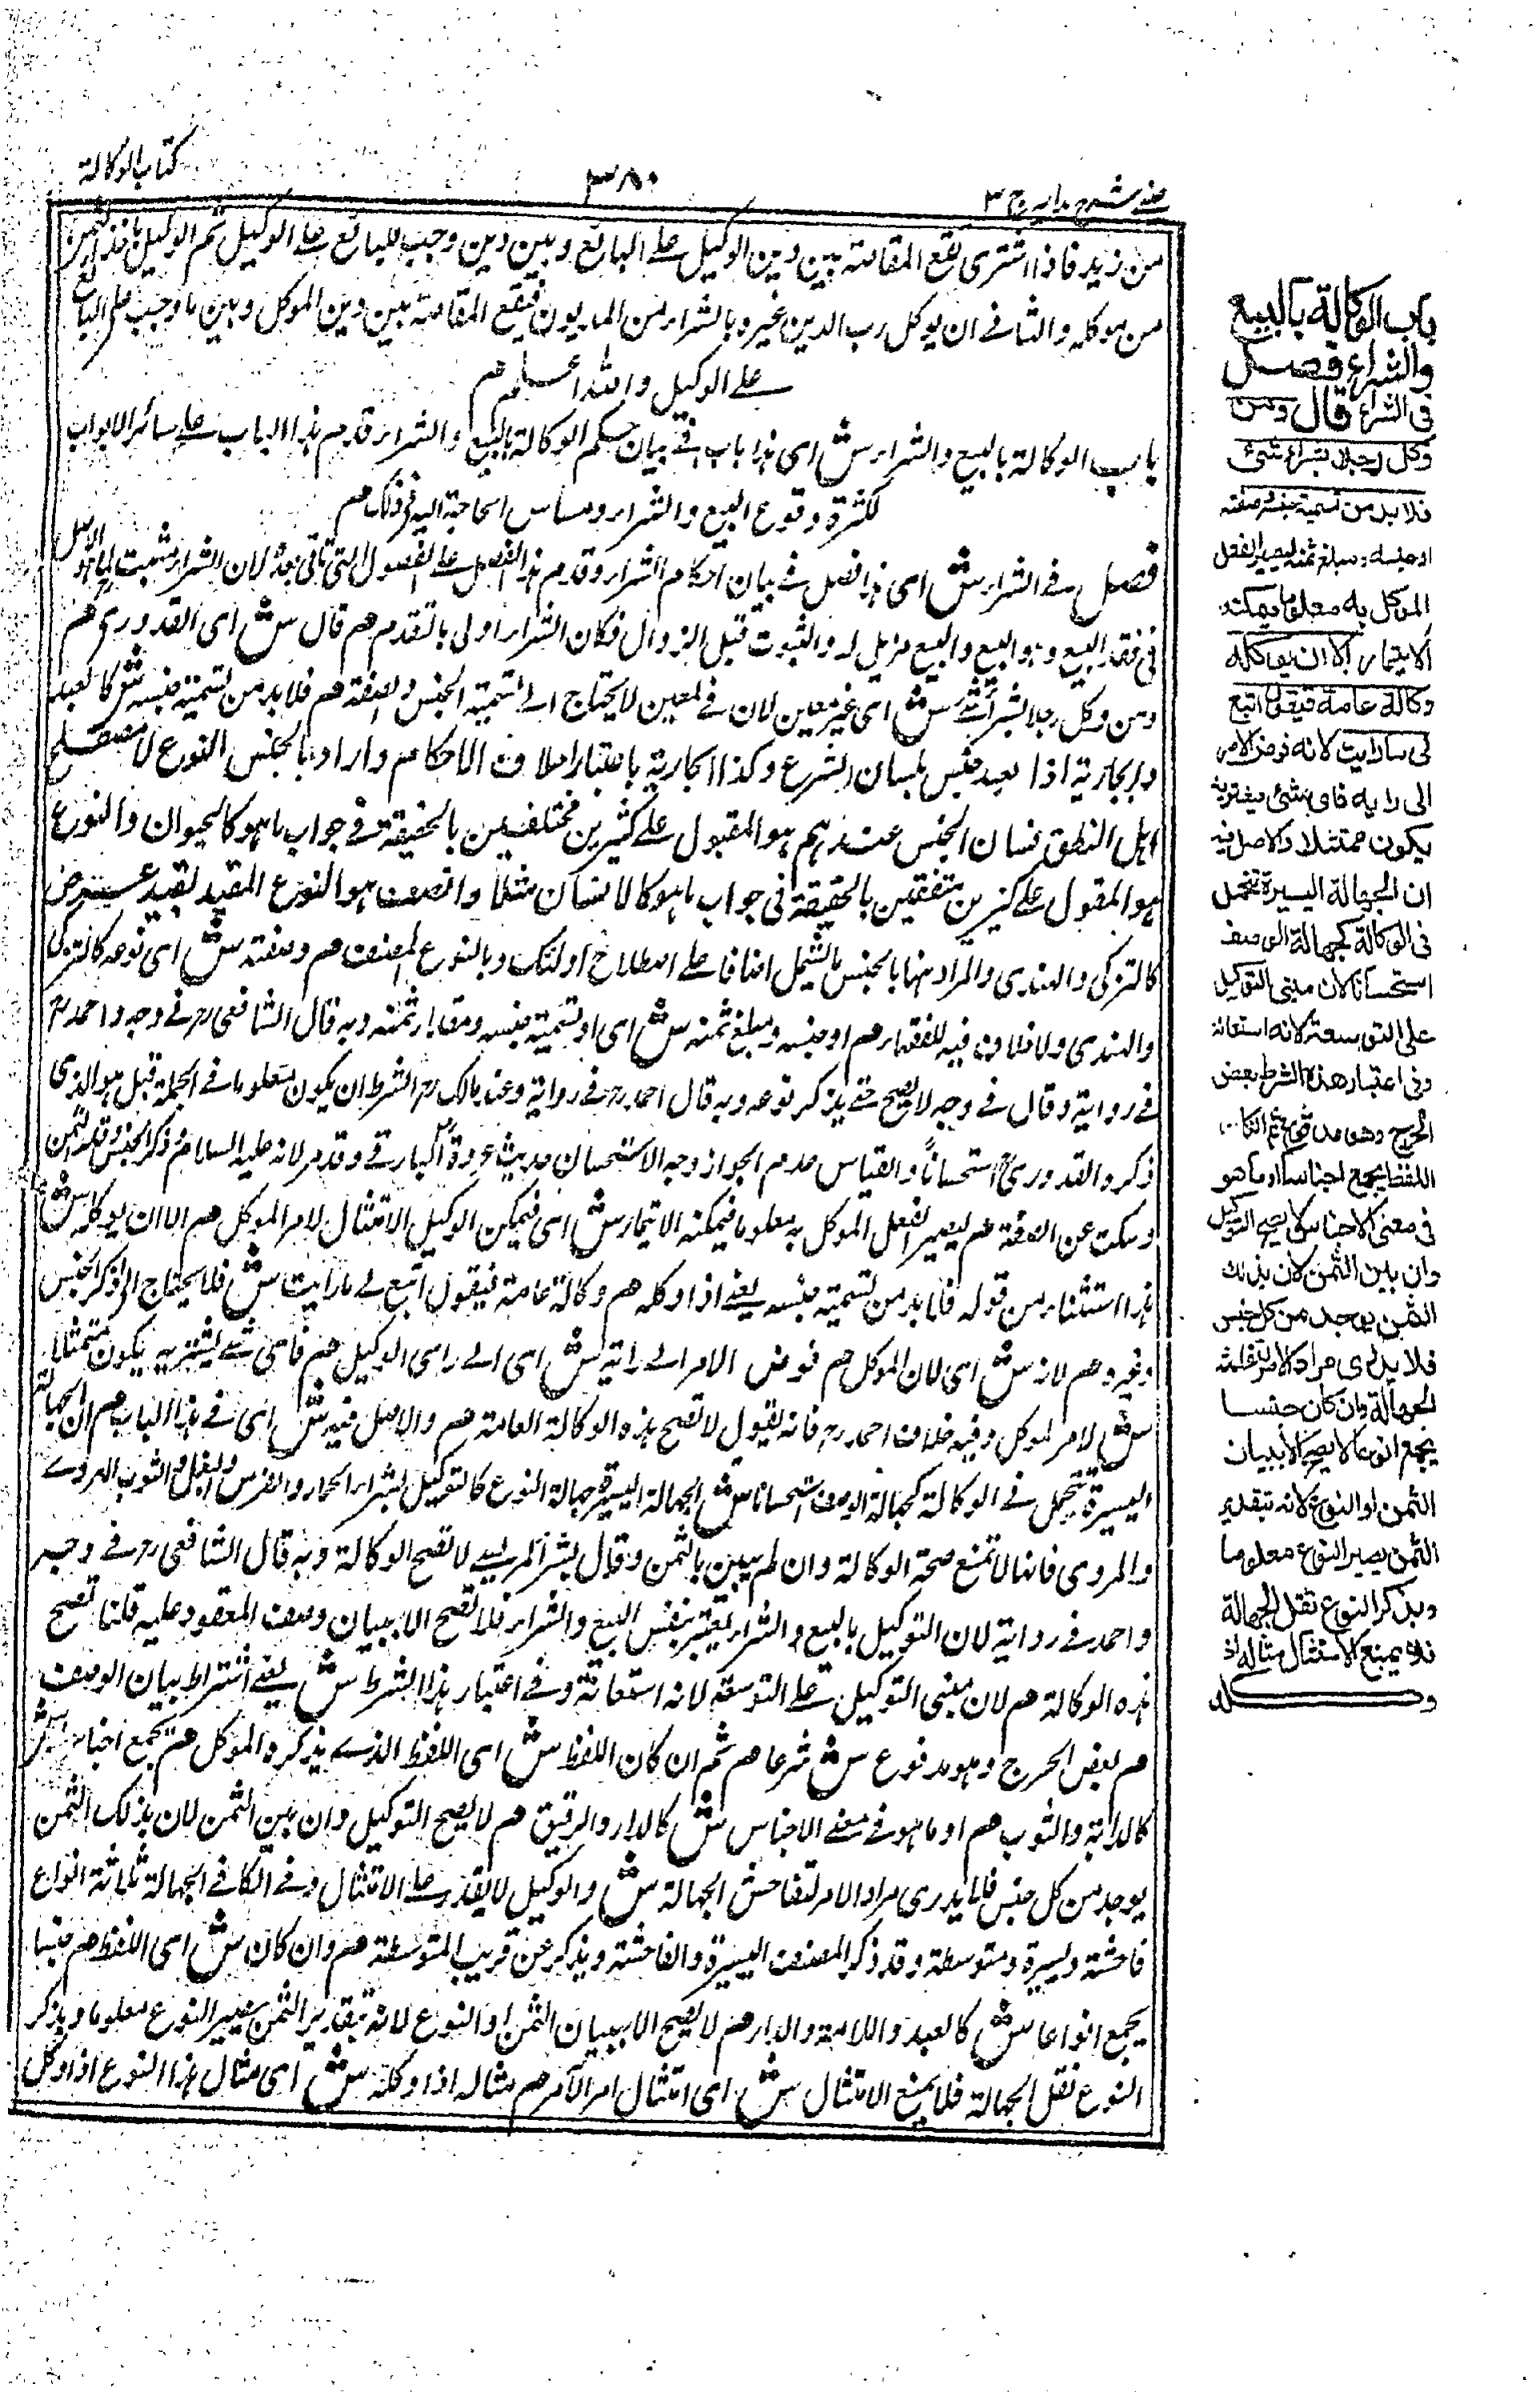 كتاب الوكالة
٣٨٠
عينى شرح هدايه ج ٣
من زيد فاذا اشترى تقع المقاصة بين دين الوكيل على البائع وبين دين وجب للبائع على الوكيل ثم الوكيل يأخذ الثمن
من موكله والثانى ان يوكل رب الدين غيره بالشراء من المديون فيقع المقاصة بين دين الموكل وبين ما وجب للبائع
على الوكيل والله اعلم هم
باب الوكالة بالبيع والشراء ش اى هذا باب فى بيان حكم الوكالة بالبيع والشراء قدم هذا الباب على سائر الابواب
لكثرة وقوع البيع والشراء ومساس الحاجة اليه فى ذلك هم
فصل فى الشراء ش اى هذا فصل فى بيان احكام الشراء وقدم هذا الفصل على الفصول التى تاتى بعد لان الشراء مثبت لما هو الاصل
فى عقد البيع وهو المبيع والبيع مزيل له والثبوت قبل الزوال فكان الشراء اولى بالتقدم هم قال ش اى القدورى هم
ومن وكل رجلا بشراء شئ ش اى غير معين لان فى المعين لا يحتاج الى تسمية الجنس والصفة هم فلا بد من تسمية جنسه ش كالعبد
والجارية اذا العبد جنس بلسان الشرع وكذا الجارية باعتبار اختلاف الاحكام واراد بالجنس النوع لا مصطلح
اهل المنطق فان الجنس عندهم هو المقول على كثيرين مختلفين بالحقيقة فى جواب ما هو كالحيوان والنوع
هو المقول على كثيرين متفقين بالحقيقة فى جواب ما هو كالانسان مثلا والصنف هو النوع المقيد بقيد عرضى
كالتركى والهندى والمراد هنا بالجنس ما يشمل اصنافا على اصطلاح اولئك وبالنوع الصنف هم وصفته ش اى نوعه كالتركى
والهندى ولا خلاف فيه للفقهاء هم او جنسه ومبلغ ثمنه ش اى او تسمية جنسه ومقدار ثمنه وبه قال الشافعى رح فى وجه واحمد رح
فى رواية وقال فى وجه لا يصح حتى يذكر نوعه وبه قال احمد رح فى رواية وعند مالك رح الشرط ان يكون معلوما فى الجملة قيل هو الذى
ذكره القدورى استحسانا والقياس عدم الجواز وجه الاستحسان حديث عروة البارقى وقد مر لانه عليه السلام ذكر الجنس وقدر الثمن
وسكت عن الصفة هم ليصير الفعل الموكل به معلوما فيمكنه الايتمار ش اى فيمكن الوكيل الامتثال لامر الموكل هم الا ان يوكله ش
هذا استثناء من قوله فلا بد من تسمية جنسه يعنى اذا وكله هم وكالة عامة فيقول ابتع لى ما رايت ش فلا يحتاج الى ذكر الجنس
وغيره هم لانه ش اى لان الموكل هم فوض الامر الى رايه ش اى الى راى الوكيل هم فاى شئ يشتريه يكون ممتثلا
ش لامر الموكل وفيه خلاف احمد رح فانه يقول لا تصح هذه الوكالة العامة هم والاصل فيه ش اى فى هذا الباب هم ان الجهالة
اليسيرة تتحمل فى الوكالة كجهالة الوصف استحسانا ش الجهالة اليسيرة جهالة النوع كالتوكيل بشراء الحمار والفرس والبغل والثوب الهروى
والمروى فانها لا تمنع صحة الوكالة وان لم يبين الثمن وقال بشر المريسى لا تصح الوكالة وبه قال الشافعى رح فى وجه
واحمد فى رواية لان التوكيل بالبيع والشراء يعتبر بنفس البيع والشراء فلا تصح الا ببيان وصف المعقود عليه قلنا تصح
هذه الوكالة هم لان مبنى التوكيل على التوسعة لانه استعانة وفى اعتبار هذا الشرط ش يعنى اشتراط بيان الوصف
هم بعض الحرج وهو مدفوع ش شرعا هم ثم ان كان اللفظ ش اى اللفظ الذى يذكره الموكل هم يجمع اجناسا ش
كالدابة والثوب هم او ما هو فى معنى الاجناس ش كالدار والرقيق هم لا يصح التوكيل وان بين الثمن لان بذلك الثمن
يوجد من كل جنس فلا يدرى مراد الامر لتفاحش الجهالة ش والوكيل لا يقدر على الامتثال وفى الكافى الجهالة ثلاثة انواع
فاحشة ويسيرة ومتوسطة وقد ذكر المصنف اليسيرة والفاحشة ويذكر عن قريب المتوسطة هم وان كان ش اى اللفظ هم جنسا
يجمع انواعا ش كالعبد والامة والدار هم لا يصح الا ببيان الثمن او النوع لانه بتقدير الثمن يصير النوع معلوما وبذكر
النوع تقل الجهالة فلا يمنع الامتثال ش اى امتثال امر الآمر هم مثاله اذا وكله ش اى مثال هذا النوع اذا وكل
باب الوكالة بالبيع
والشراء فصل
فى الشراء قال ومن
وكل رجلا بشراء شئ
فلا بد من تسمية جنسه وصفته
او جنسه ومبلغ ثمنه ليصير الفعل
الموكل به معلوما فيمكنه
الايتمار الا ان يوكله
وكالة عامة فيقول ابتع
لى ما رايت لانه فوض الامر
الى رايه فاى شئ يشتريه
يكون ممتثلا والاصل فيه
ان الجهالة اليسيرة تتحمل
فى الوكالة كجهالة الوصف
استحسانا لان مبنى التوكيل
على التوسعة لانه استعانة
وفى اعتبار هذا الشرط بعض
الحرج وهو مدفوع ثم ان كان
اللفظ يجمع اجناسا او ما هو
فى معنى الاجناس لا يصح التوكيل
وان بين الثمن لان بذلك
الثمن يوجد من كل جنس
فلا يدرى مراد الامر لتفاحش
الجهالة وان كان جنسا
يجمع انواعا لا يصح الا ببيان
الثمن او النوع لانه بتقدير
الثمن يصير النوع معلوما
وبذكر النوع تقل الجهالة
فلا يمنع الامتثال مثاله اذا
وكله